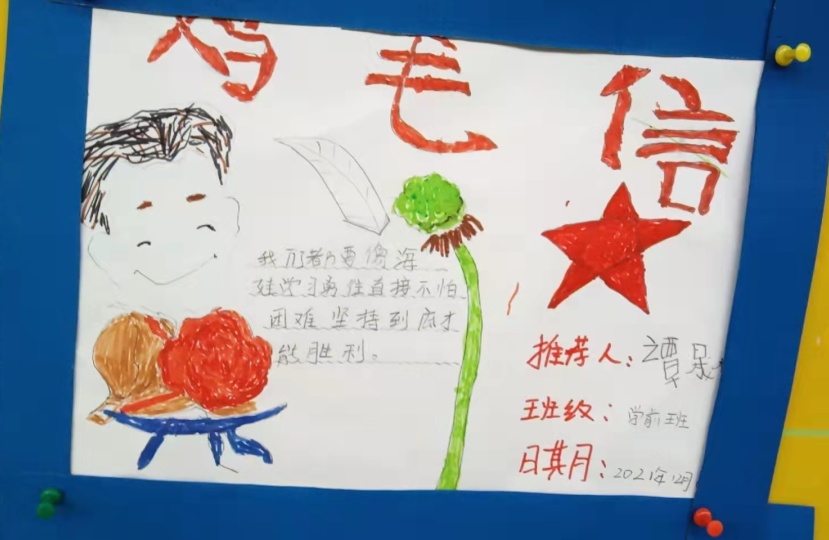 鸡毛信
我们都要像海
娃学习勇往直接不怕
困难坚持到底才
能胜利。
推荐人:谭
班级:学前班
日期:2021年12月